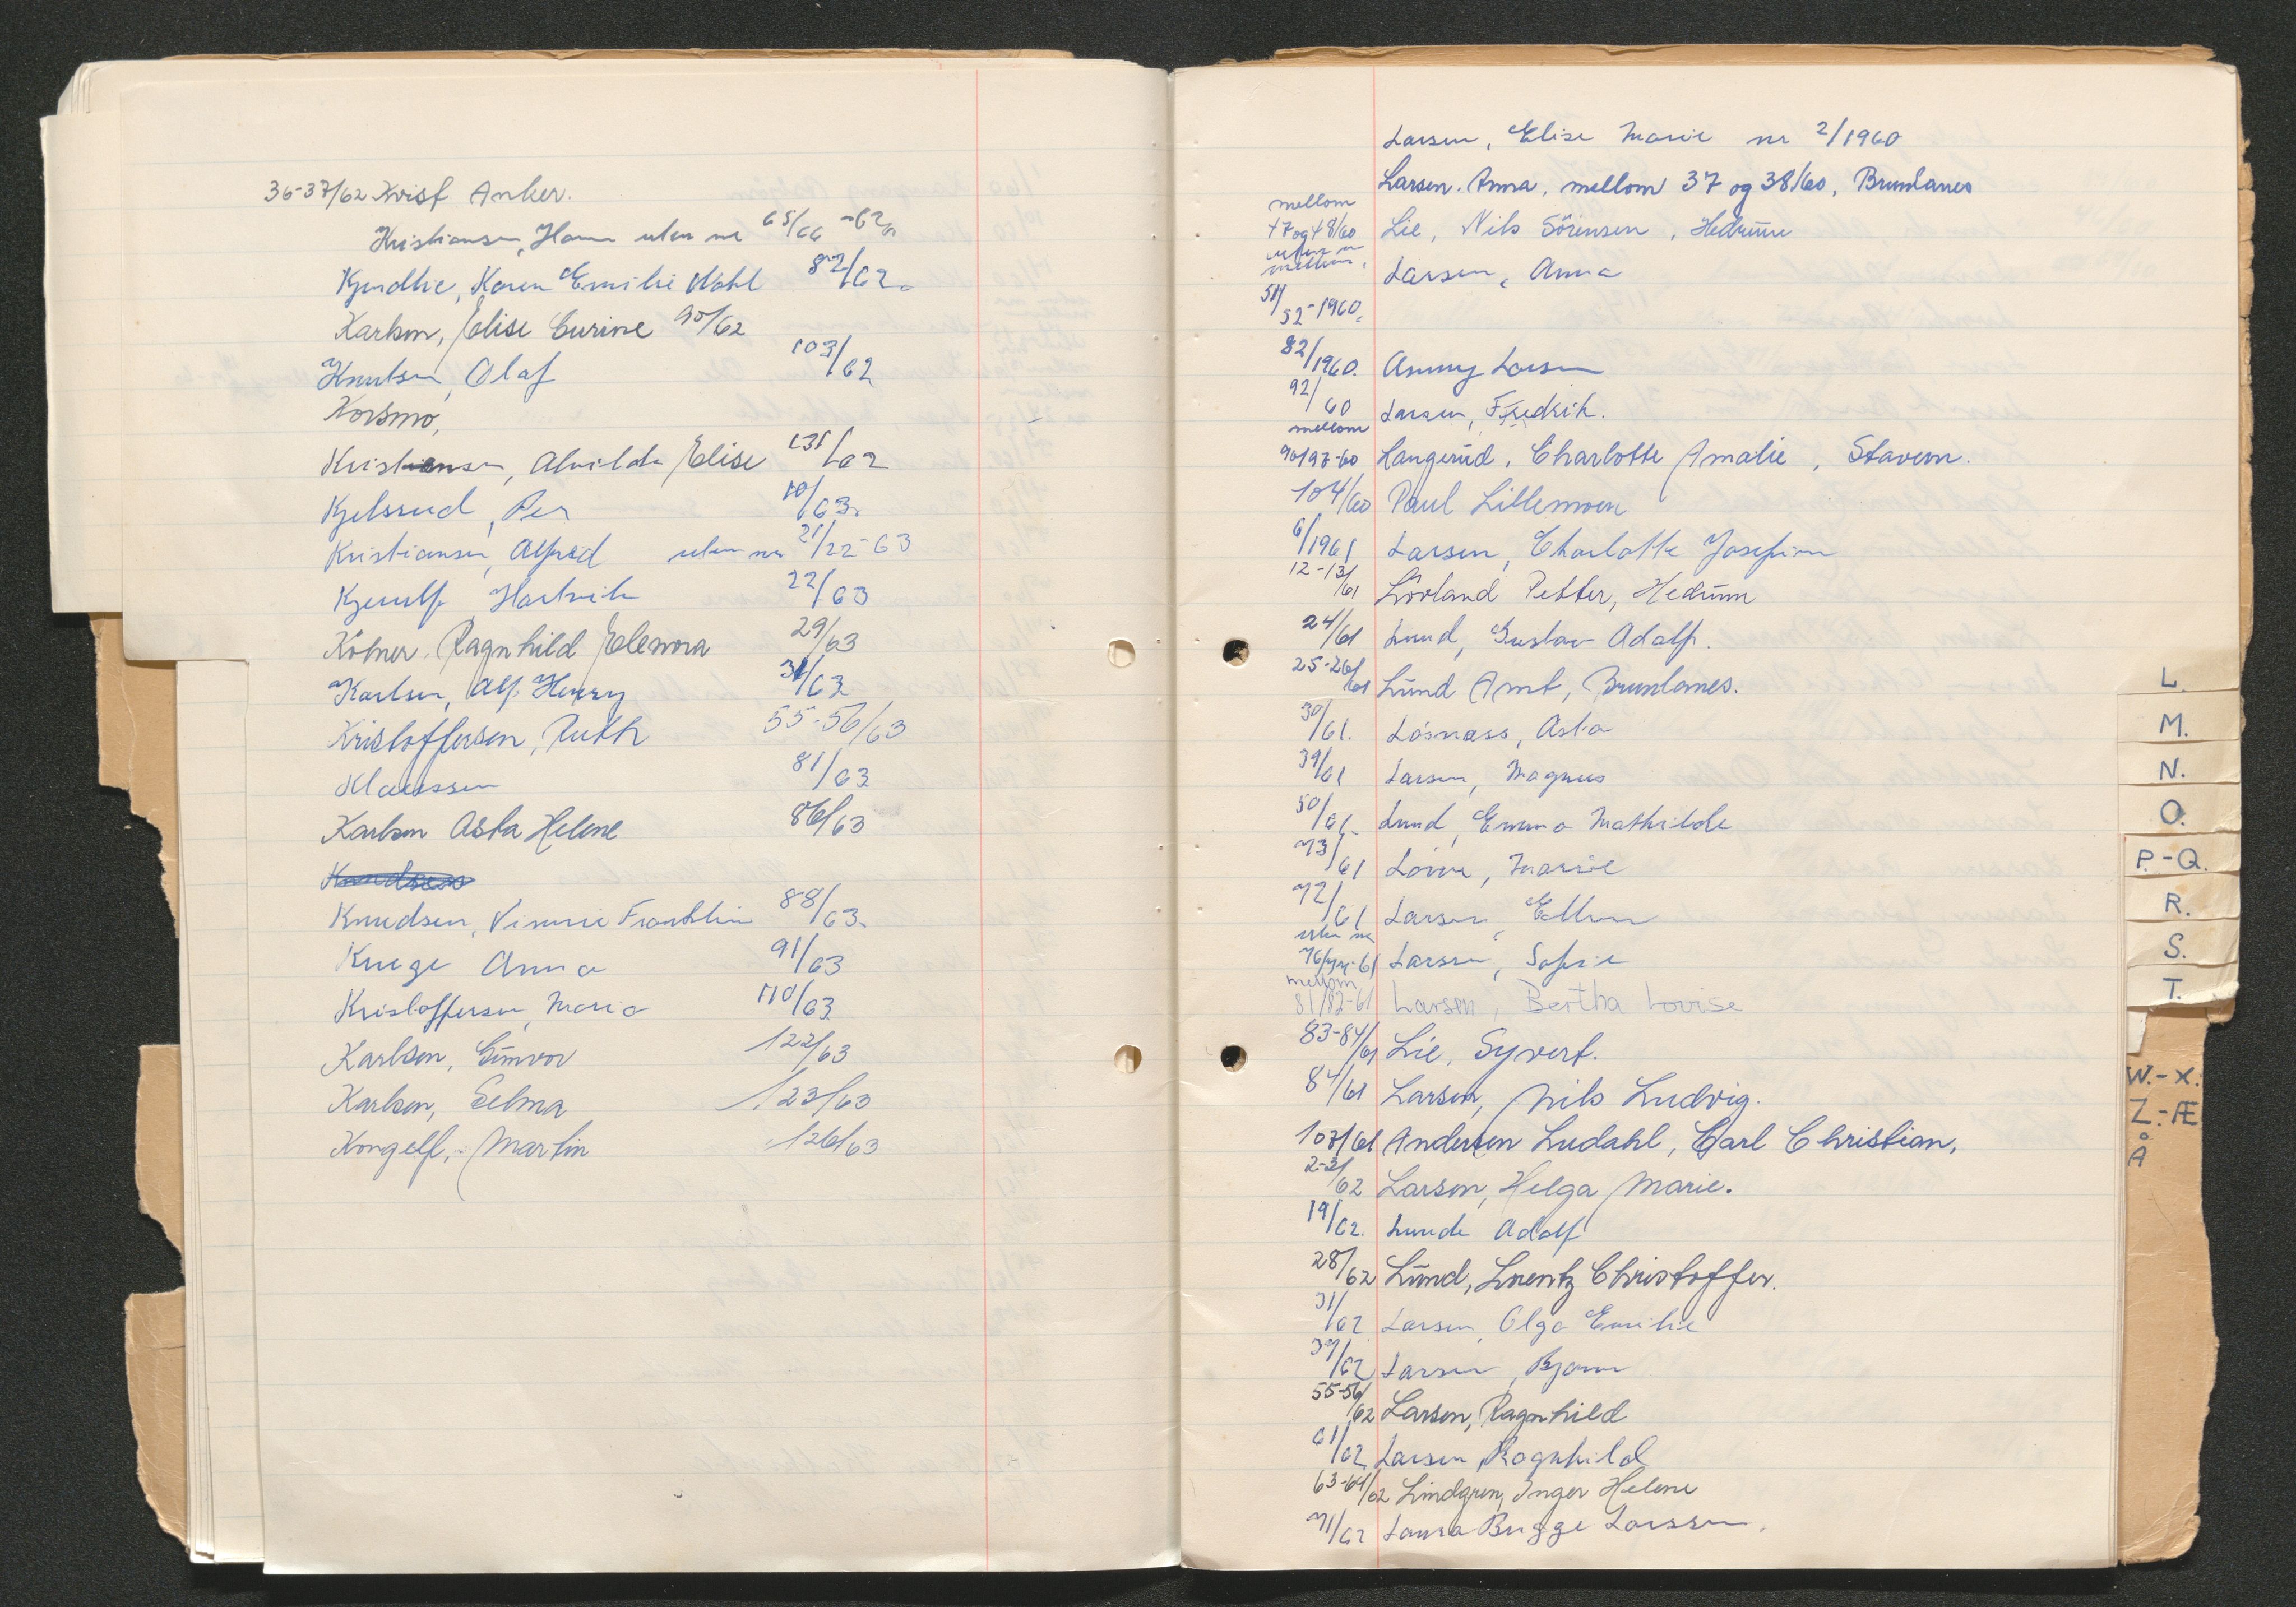 36-37/62 Kvist Anker.
Kristiansen, Hans uten nr 65/66 -62
Kjendlie, Karen Emilie Dahl 82/62.
Karlsen, Elise Eurine 90/62
Knutsen, Olaf 103/62
Korsmo,
Kristiansen, Alvilde Elise 131/62
Kjelsrud, Per 10/63.
Kristiansen, Alfred uten nr 21/22-63
Kjerulf Hartvik 22/63
Kötner, Ragnhild Elenora 29/63
Karlsen, Alf Henry 31/63
Kristoffersen, Ruth 55-56/63
Klaussen 81/63
Karlsen Asta Helene 86/63
Knudsen
Knudsen, Vinnie Franklin 88/63.
Kruge Anna 91/63
Kristoffersen, Maria 110/63
Karlsen, Gunvor 122/63
Karlsen, Selma 123/63
Kongelf, Martin 126/63
Larsen, Elise Marie nr 2/1960
Larsen. Anna, mellom 37 og 38/60, Brunlanes
mellom
47 og 48/60 Lie, Nils Sörensen, Hedrum
uten nr
mellom, Larsen, Anna
51/52-1960.
82/1960. Anny Larsen
92/60 Larsen, Fredrik.
mellom
96/97-60 Haugerud, Charlotte Amalie, Stavern.
104/60 Paul Lillemoen
6/1961 Larsen, Charlotte Josefine
12-13/61 Lövland Petter, Hedrum
24/61 Lund, Gustav Adolf.
25-26/61 Lund Arnt, Brunlanes.
30/61. Lösnæss, Asta
39/61 Larsen, Magnus
50/61. Lund, Emma Mathilde
73/61 Löwe, Marie
72/61 Larsen, Ellen
uten nr
76/77-61 Larsen, Sofie
mellom
81/82-61 Larsen, Bertha Lovise
83-84/61 Lie, Syvert.
87/61 Larsen, Nils Ludvig.
107/61 Andersen Ludahl, Carl Christian,
2-3/62 Larsen, Helga Marie.
19/62. Lunde Adolf
28/62 Lund, Lorentz Christoffer.
31/62 Larsen, Olga Emilie
37/62 Larsen, Bjarne
55-56/62 Larsen, Ragnhild
61/62 Larsen, Ragnhild
63-64/62 Lindgren, Inger Helene
71/62 Laura Brügge Larssen.
L.
M.
N.
O.
P.-Q.
R.
S.
T.
W.-X.
Z.-Æ
Å